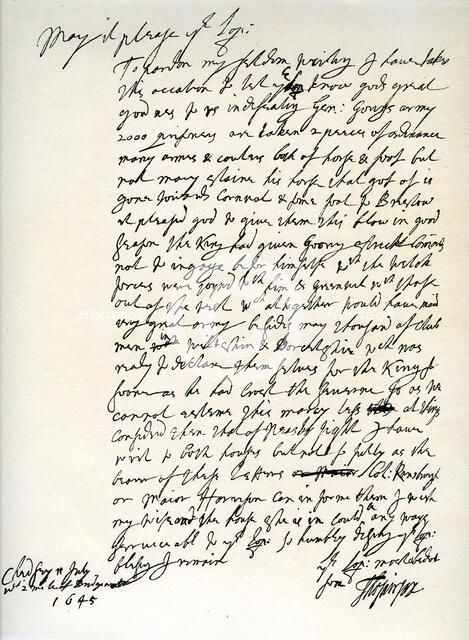 May it please yr Lop:
To pardon my seldom writing I have taken
this occation to let yr Lop know gods great
goodnes to us in defeating Gen: Gorings army
2000 prisoners are taken 2 peeces of ordinance
many armes & coulers both of horse & foot but
not many slaine his horse that got of is
gone towards Cornwal & some foot to Bristow
it pleased god to give them this blow in good
season the King had given Goring strickt Comands
not to ingage before himselfe wth the Welch
forces were joyned wth him & Greenvil wth those
out of the west wch altogether would have mad
very great army besides many thousand of Club
men in Wilteshire & Dorcetshire wch was
ready to declare themselves for the King so
soone as he had crost the Severne so as we
cannot esteeme this marcy less all things
considred then that of Naseby fight I have
writ to both houses but not so fully as the
bearer of these Letters Col: Rainsborgh
or Maior Harrison can informe them I wish
my wife and the house she is in could any ways
serviceable to yr Lop: so humbly disyring yr Lop:
blessing I remain
yr Lop: most obedient
son
July
1645